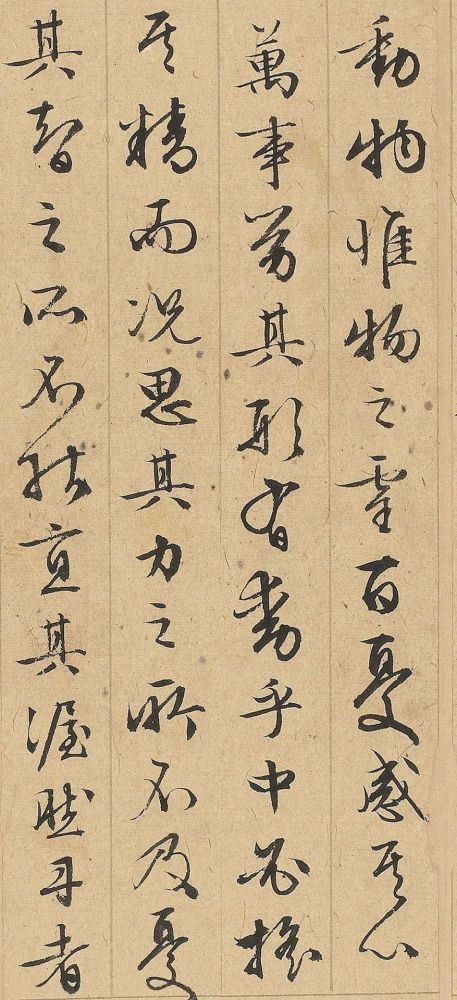 動物惟物之靈百憂感其心
萬事勞其形有動乎中必搖
其精而况思其力之所不及憂
其智之所不能宜其渥然丹者